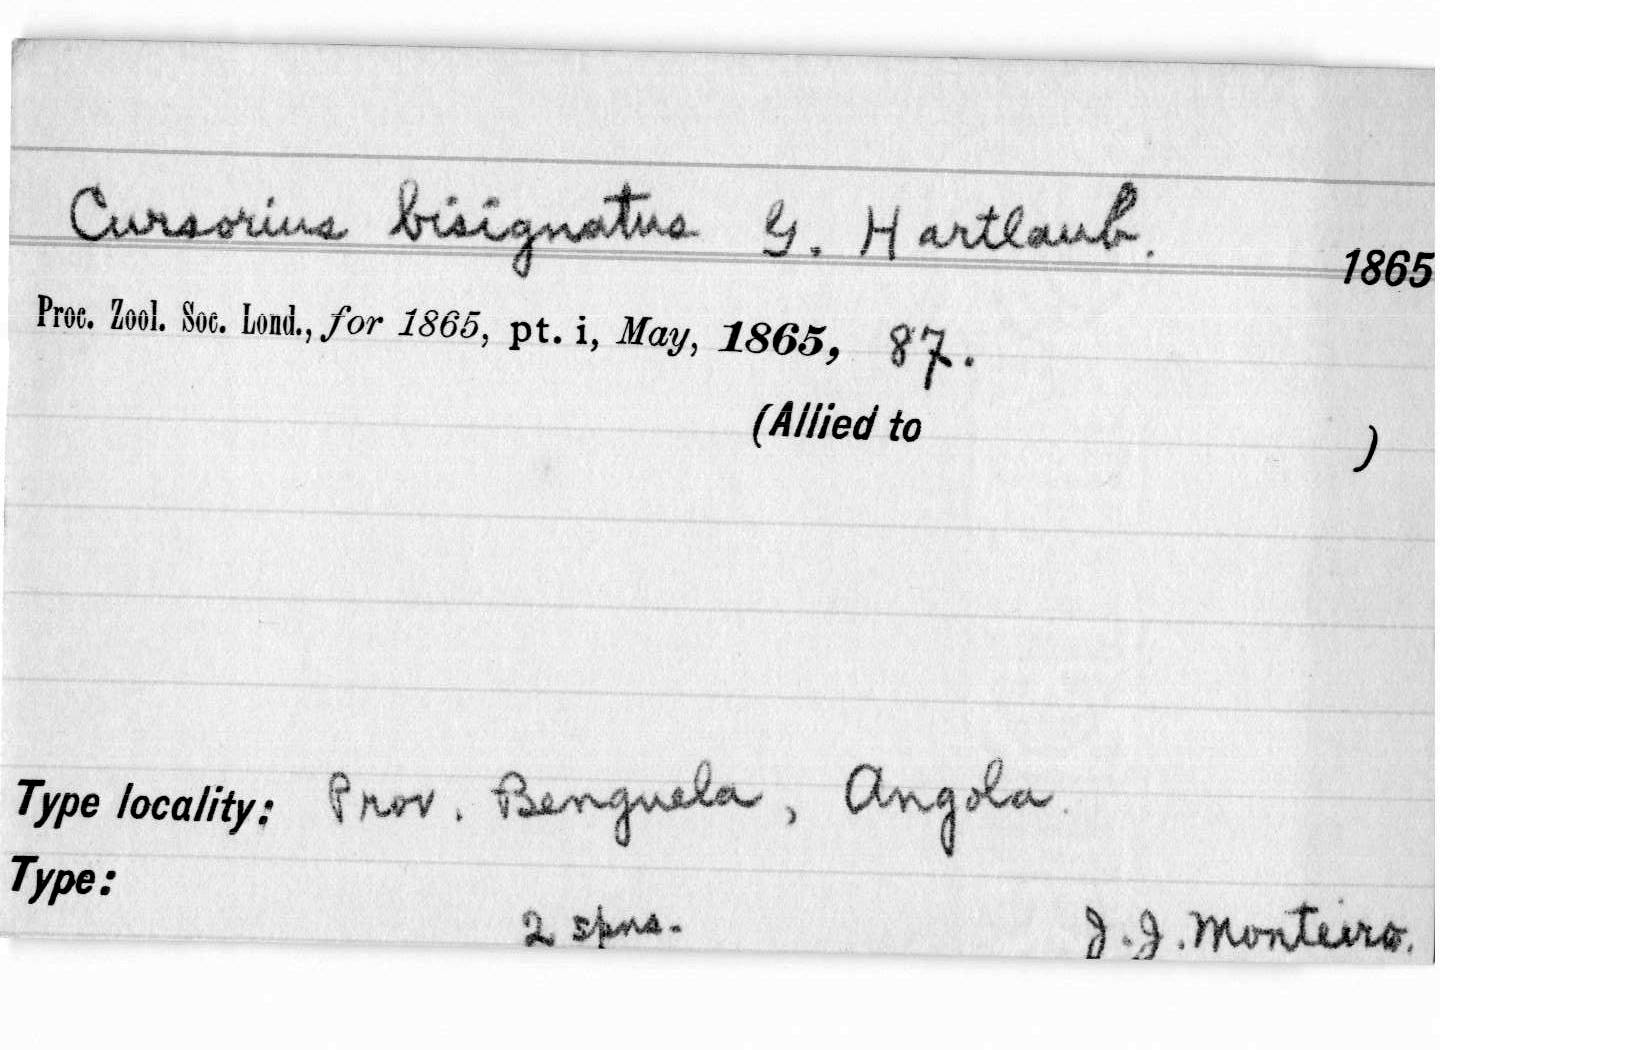 Cursorius bisignatus G. Hartlaub.
1865
Proc. Zool. Soc. Lond., for 1865, pt. i, May, 1865, 87.
(Allied to )
Type locality: Prov. Benguela, Angola.
Type:
2 spns. J. J. Monteiro.